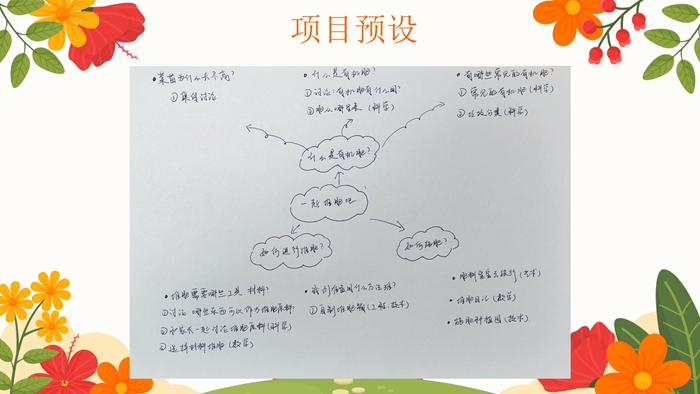 项目预设
• 菜苗为什么长不高?
① 集体讨论
• 什么是有机肥?
① 讨论:有机肥有什么用?
② 肥从哪里来(科学)
• 有哪些常见的有机肥?
① 常见的有机肥(科学)
② 垃圾分类(科学)
什么是有机肥?
一起堆肥吧
如何进行堆肥?
如何施肥?
• 堆肥需要哪些工具、材料?
① 讨论 哪些东西可以作为堆肥原料?
② 和家长一起讨论堆肥原料(科学)
③ 选择材料堆肥(数学)
• 我们准备用什么方法堆?
① 自制堆肥箱(工程、技术)
• 肥料(艺术)
• 堆肥日记(数学)
• 施肥种植园(技术)